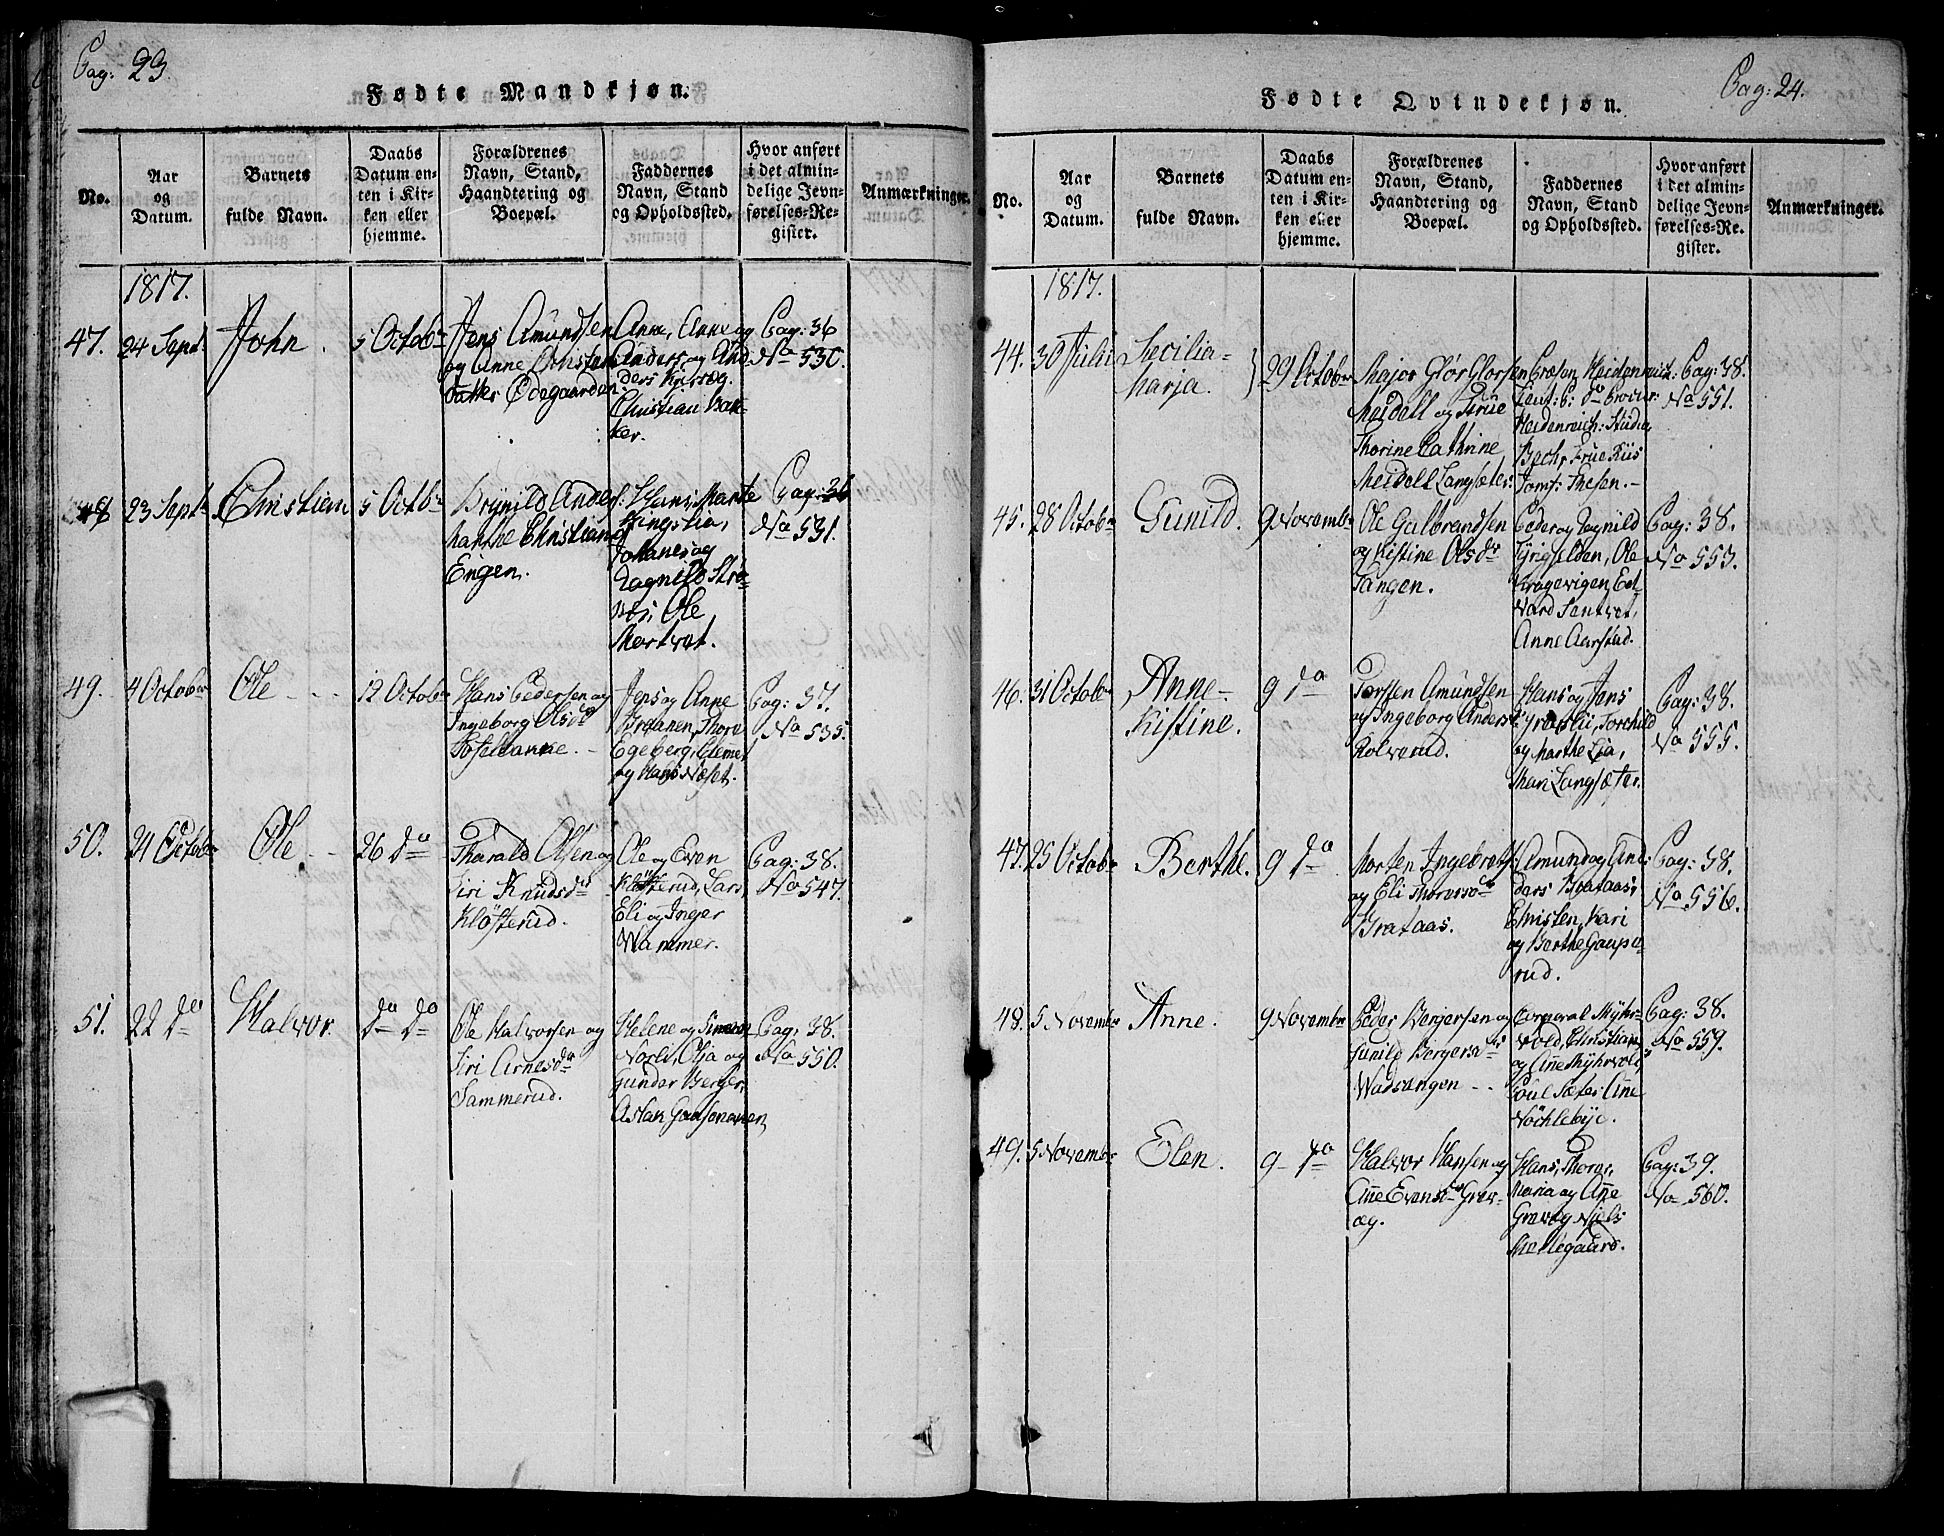 Pag: 23.
Fødte Mandkjøn.
No.
Aar
og
Datum.
Barnets
fulde Navn.
Daabs
Datum en-
ten i Kir-
ken eller
hjemme.
Forældrenes
Navn, Stand,
Haandtering og
Boepæl.
Faddernes
Navn, Stand
og Opholdssted.
Hvor anført
i det almin-
delige Jevn-
førelses-Re-
gister.
Anmærkninger.
1817.
47.
24 Sept:
John.
5 Octobr
Jens Amundsen
og Anne Christens
Odegaarden
Anne, Anne og
Anders og An-
ders
Christian Bak-
ker.
Pag: 36
No 530.
48
23 Septr
Christian
5 Octbr
Brynild Anders:
Marthe Christians
Engen.
Hans, Marte
Johanes og
Dagnild
Ole
Mortvet.
Pag: 36
No 531.
49.
4 Octobr
Ole
12 Octobr
Hans Pedersen og
Ingeborg Olsdr
Jens og Anne
Braanen, Thore
Egeberg, Clemet
og Hans Næset.
Pag: 37.
No 535.
50.
21 Octobr
Ole
26 do
Tharald Olsen og
Siri Knudsdr
Klösterud.
Ole og Even
Klösterud, Lars,
Eli og Inger
Wammer.
Pag: 38.
No 547.
51.
22 do
Halvor.
do do
Ole Halvorsen og
Siri Arnesdr
Sammerud.
Helene og Simen
Norli, Olja og
Gunder Berger,
Aslak
Pag: 38.
No 550.
Pag: 24.
Fødte Qvindekjøn.
No.
Aar
og
Datum.
Barnets
fulde Navn.
Daabs
Datum en-
ten i Kir-
ken eller
hjemme.
Forældrenes
Navn, Stand,
Haandtering og
Boepæl.
Faddernes
Navn, Stand
og Opholdssted.
Hvor anført
i det almin-
delige Jevn-
førelses-Re-
gister.
Anmærkninger.
1817.
44.
30 Julii
Sæcilia
Marja.
29 Octobr
Major Glör Glorsen
Meidell og Frue
Thorine Cathrine
Meidell Langsæter.
Heidenreich:
Lieut: P:
Heidenreich: Studio:
Bech, Frue Riis
Jomf: Thesen.
Pag: 38.
No 551.
45.
28 Octobr
Gunild.
9 Novembr
Ole Gulbrandsen
og Kistine Olsdr
Tangen.
Peder og Ragnild
Ole
Kragevigen, Ed-
vard
Anne Aarstad.
Pag: 38.
No 553.
46.
31 Octobr
Anne
Kistine.
9 do
Torsten Amundsen
og Ingeborg Anders:
Rolverud.
Hans og Jens
Torchild
og Marthe Lia,
Mari Langsæter.
Pag: 38.
No 555.
47.
25 Octobr
Berthe.
9 do
Morten Ingebretss:
og Eli Thoresdr
Brataas.
Amund og An-
ders Brataas,
Christen, Kari
og Berthe Gaupe-
rud.
Pag: 38.
No 556.
48.
5 Novembr
Anne.
9 Novembr
Peder Bergersen og
Gunild Bergersdr
Wadsangen
Corporal Myhr-
vold, Christian
og Ane Myhrvold,
Poul Sæter Ane
Nöchlebye.
Pag: 38.
No 559.
49.
5 Novembr
Elen.
9 do
Halvor Hansen og
Ane Evensdr Grev-
æg.
Hans, Thorer,
Maria og Ane
Grevæg, Niels
Mellegaard.
Pag: 39.
No 560.